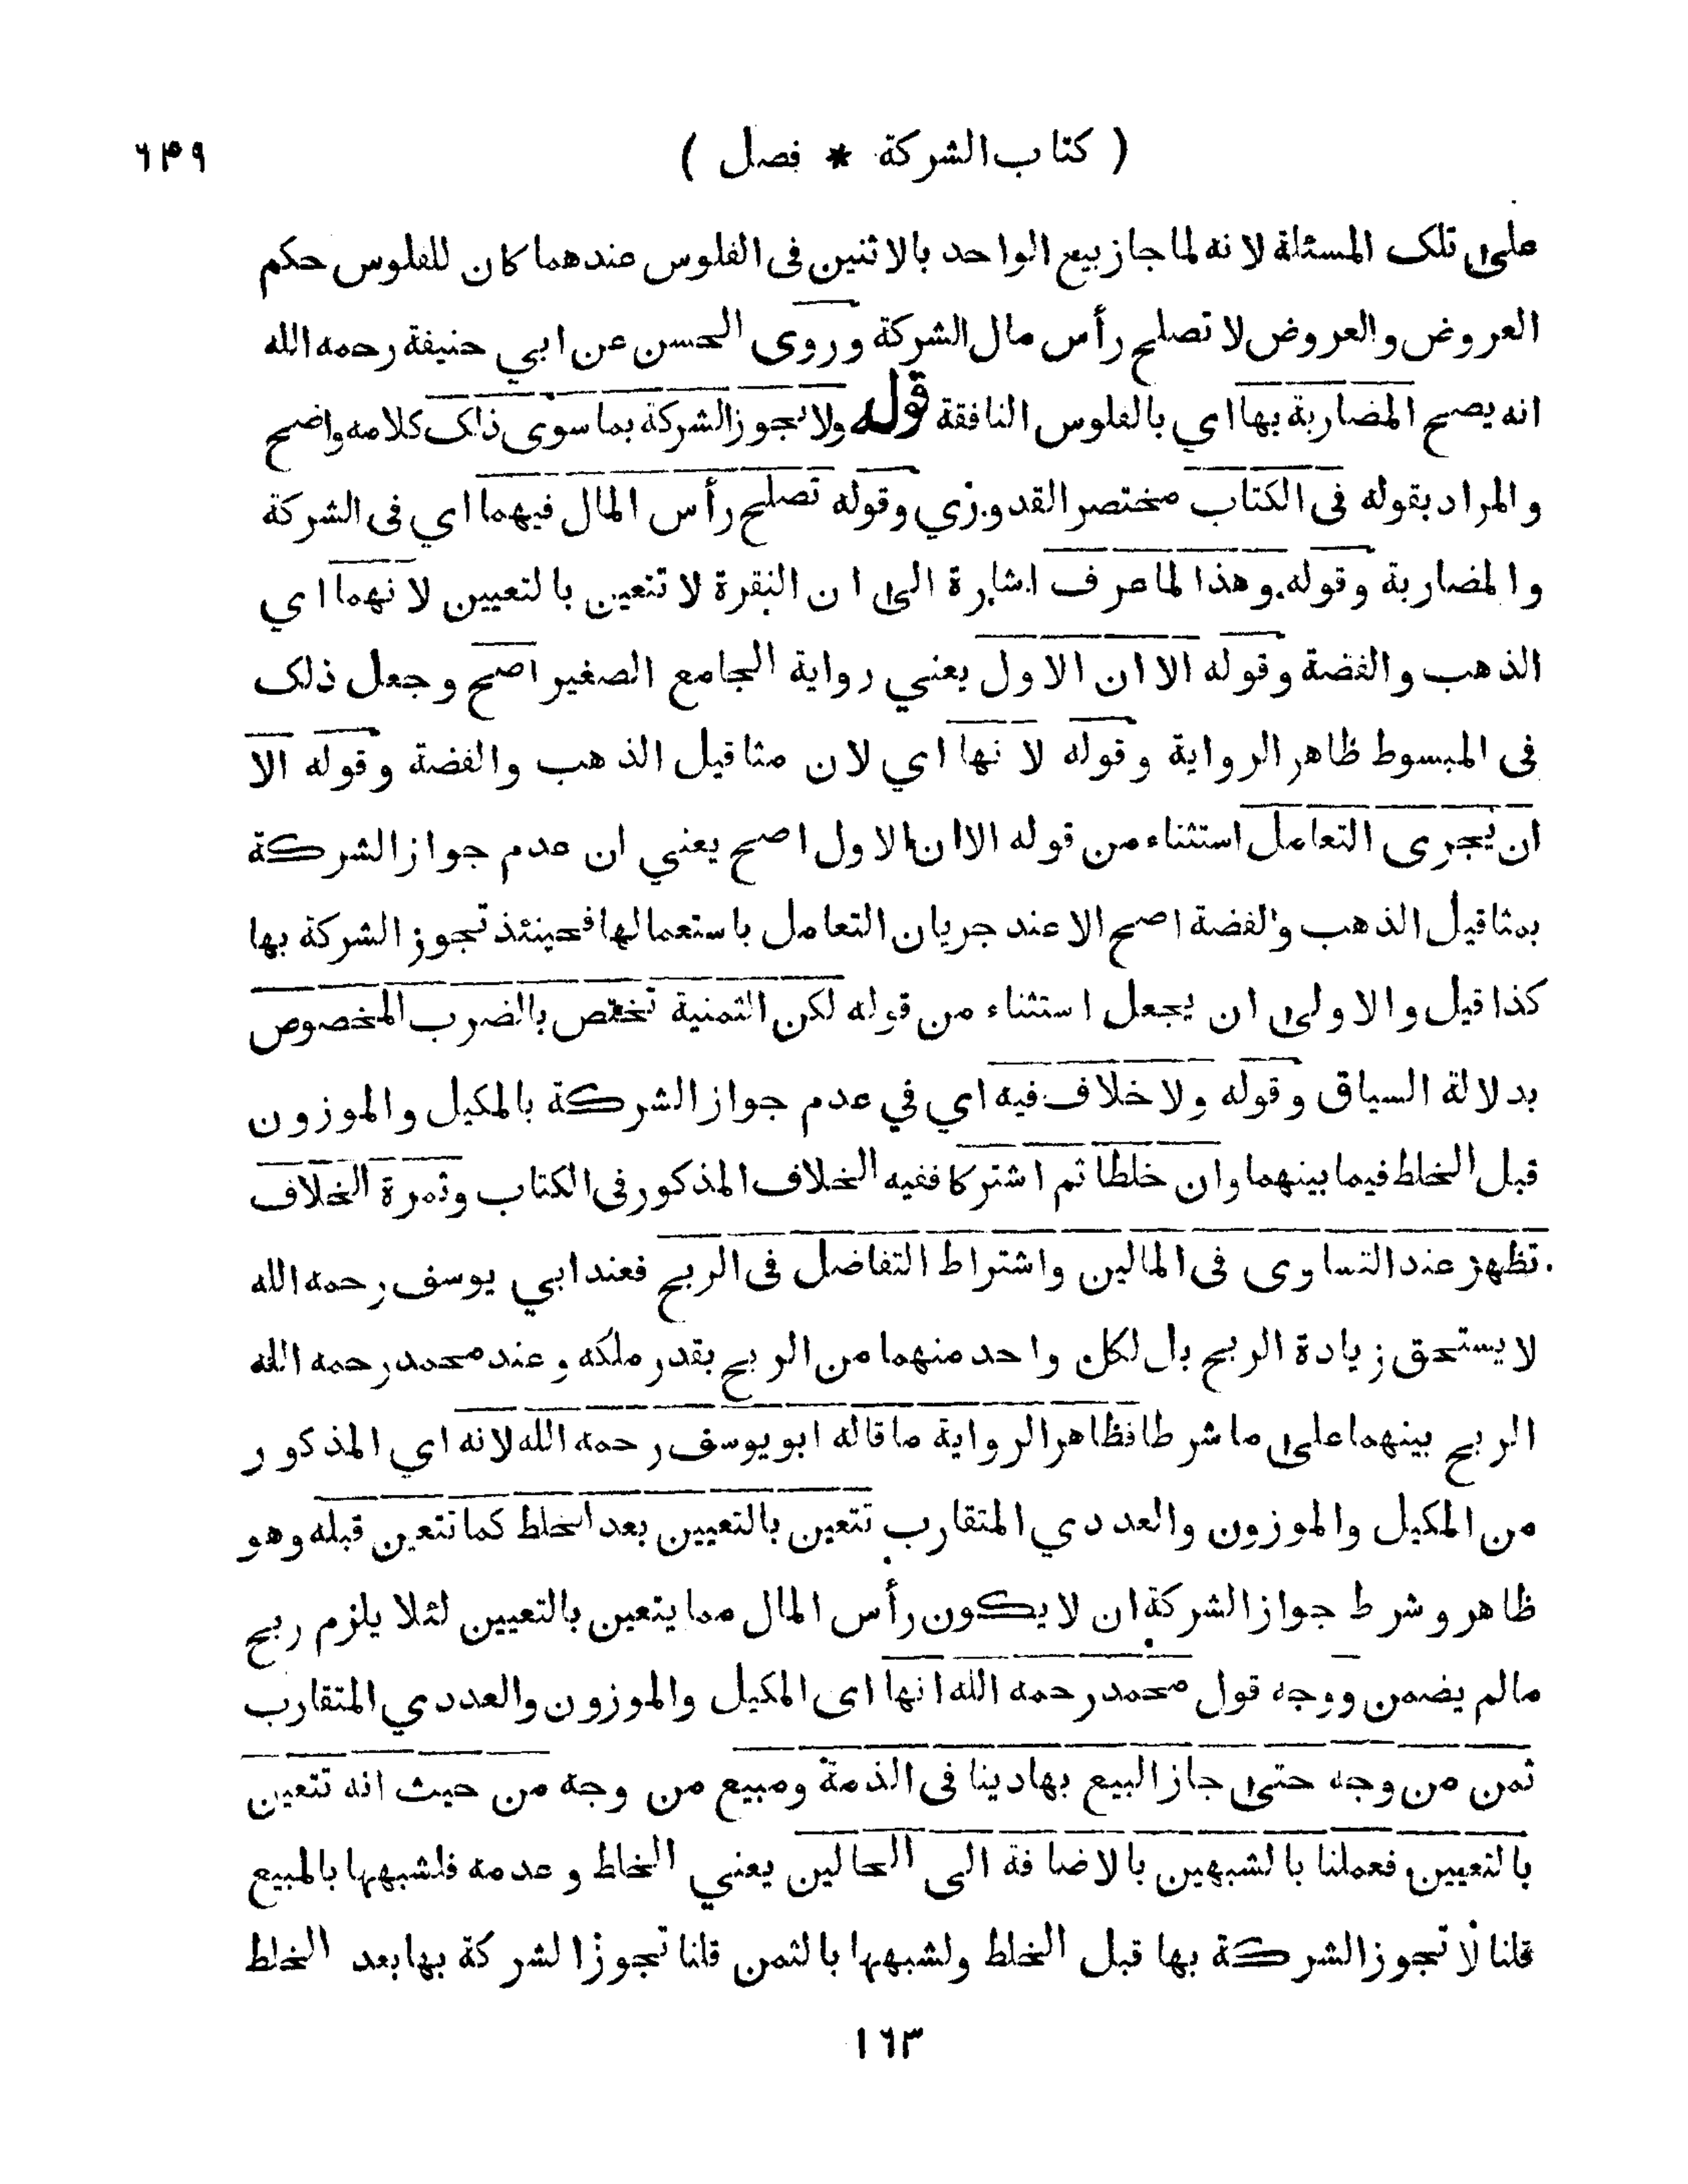 ( كتاب الشركة * فصل )
٦٣٩
على تلك المسئلة لانه لما جاز بيع الواحد بالاثنين فى الفلوس عندهما كان للفلوس حكم
العروض والعروض لا تصلح رأس مال الشركة وروى الحسن عن ابي حنيفة رحمه الله
انه يصح المضاربة بها اي بالفلوس النافقة قوله ولا تجوز الشركة بما سوى ذلك كلامه واضح
والمراد بقوله فى الكتاب مختصر القدوري وقوله تصلح رأس المال فيهما اي فى الشركة
والمضاربة وقوله وهذا لما عرف اشارة الى ان النقرة لا تتعين بالتعيين لانهما اي
الذهب والفضة وقوله الا ان الاول يعني رواية الجامع الصغير اصح وجعل ذلك
فى المبسوط ظاهر الرواية وقوله لانها اي لان مثاقيل الذهب والفضة وقوله الا
ان يجرى التعامل استثناء من قوله الا ان الاول اصح يعني ان عدم جواز الشركة
بمثاقيل الذهب والفضة اصح الا عند جريان التعامل باستعمالها فحينئذ تجوز الشركة بها
كذا قيل والاولى ان يجعل استثناء من قوله لكن الثمنية تختص بالضرب المخصوص
بدلالة السياق وقوله ولا خلاف فيه اي في عدم جواز الشركة بالمكيل والموزون
قبل الخلط فيما بينهما وان خلطا ثم اشتركا ففيه الخلاف المذكور فى الكتاب وثمرة الخلاف
تظهر عند التساوى فى المالين واشتراط التفاضل فى الربح فعند ابي يوسف رحمه الله
لا يستحق زيادة الربح بل لكل واحد منهما من الربح بقدر ملكه وعند محمد رحمه الله
الربح بينهما على ما شرطا فظاهر الرواية ما قاله ابو يوسف رحمه الله لانه اي المذكور
من المكيل والموزون والعددي المتقارب تتعين بالتعيين بعد الخلط كما تتعين قبله وهو
ظاهر وشرط جواز الشركة ان لا يكون رأس المال مما يتعين بالتعيين لئلا يلزم ربح
مالم يضمن ووجه قول محمد رحمه الله انها اى المكيل والموزون والعددي المتقارب
ثمن من وجه حتى جاز البيع بها دينا فى الذمة ومبيع من وجه من حيث انه تتعين
بالتعيين فعملنا بالشبهين بالاضافة الى الحالين يعني الخلط وعدمه فلشبهها بالمبيع
قلنا لا تجوز الشركة بها قبل الخلط ولشبهها بالثمن قلنا تجوز الشركة بها بعد الخلط
١٦٣